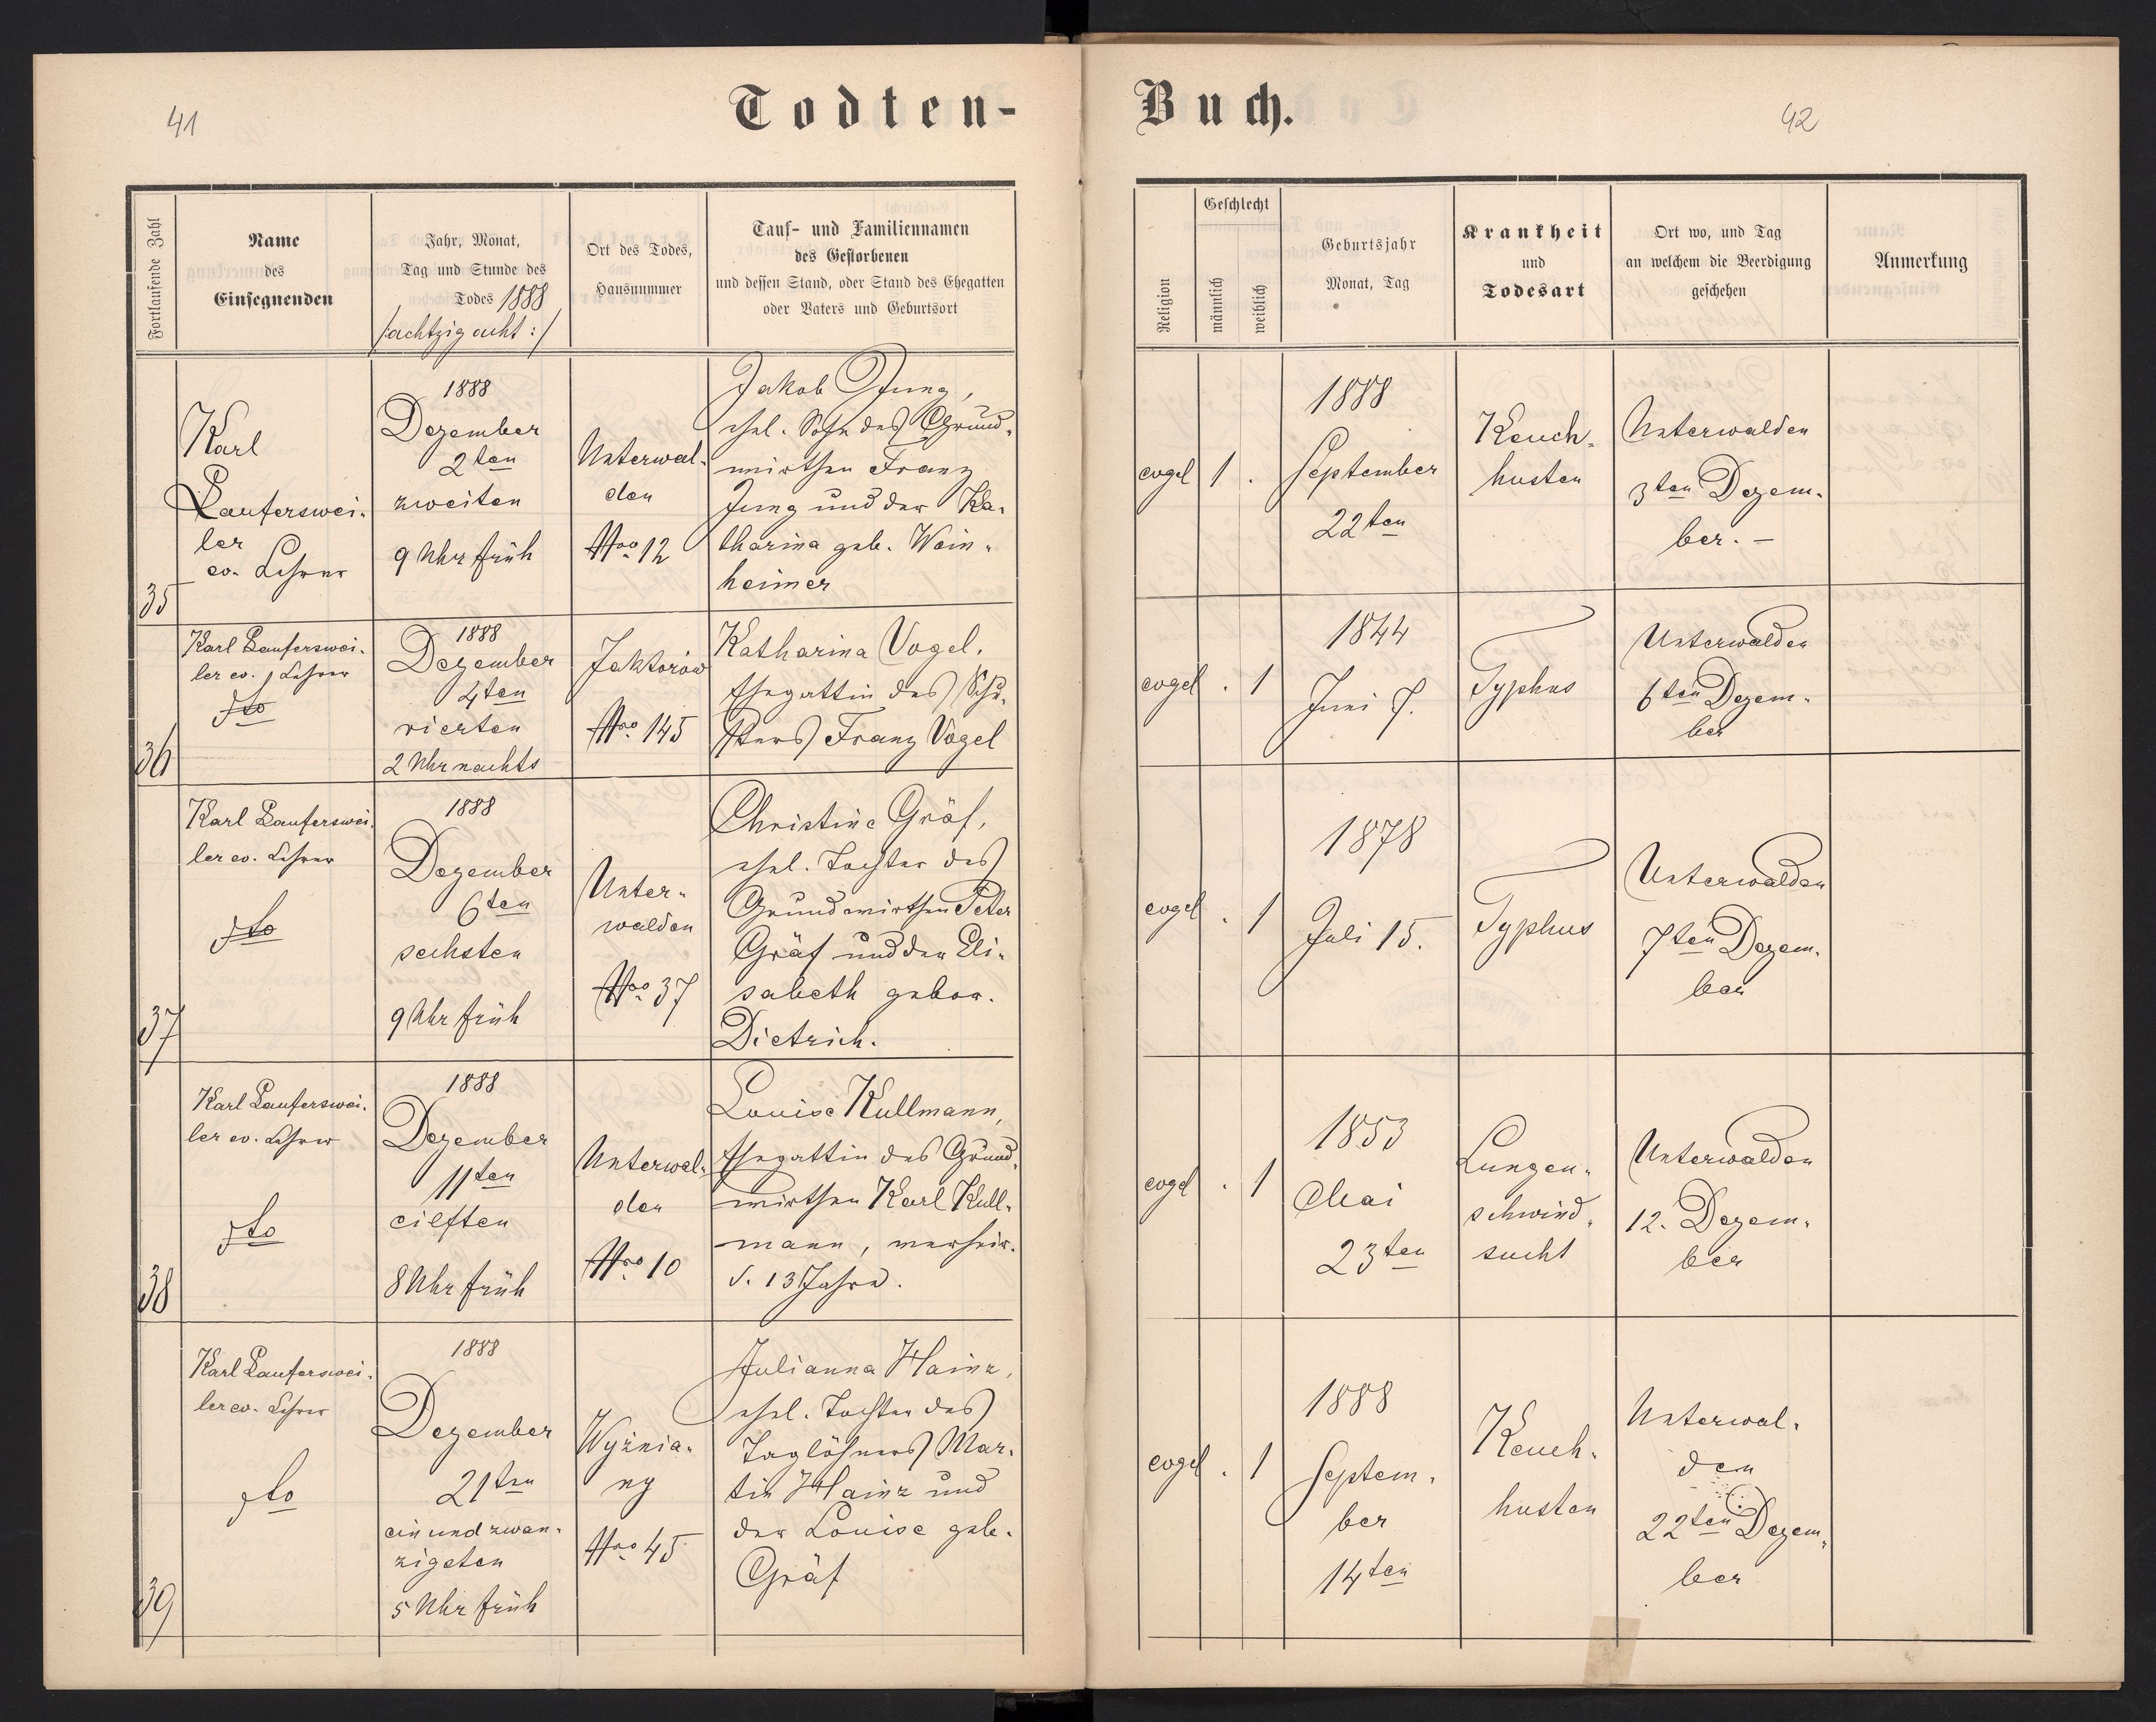 41
Todten-
Buch.
42
Fortlaufende Zahl
Name
des
Einsegnenden
Jahr, Monat,
Tag und Stunde des
Todes 1888
/:achtzig acht:/
Ort des Todes,
Hausnummer
Tauf- und Familiennamen
des Gestorbenen
und dessen Stand, oder Stand des Ehegatten
oder Vaters und Geburtsort
Religion
Geschlecht
männlich
weiblich
Geburtsjahr
Monat, Tag
Krankheit
und
Todesart
Ort wo, und Tag
an welchem die Beerdigung
geschehen
Anmerkung
35
Karl
Lauferswei-
ler
ev. Lehrer
1888
Dezember
2ten
zweiten
9 Uhr früh
Unterwal-
den
Nro 12
Jakob Jung,
ehel. Sohn des Grund-
wirthen Franz
Jung und der Ka-
tharina geb. Wein-
heimer
evgel
1
.
1888
September
22ten
Keuch-
husten
Unterwalden
3ten Dezem-
ber. –
36
Karl Lauferswei-
ler ev. Lehrer
dto
1888
Dezember
4ten
vierten
2 Uhr nachts
Jaktorów
Nro 145
Katharina Vogel,
Ehegattin des Schu-
sters Franz Vogel
evgel
.
1
1844
Juni 7.
Typhus
Unterwalden
6ten Dezem-
ber
37
Karl Lauferswei-
ler ev. Lehrer
dto
1888
Dezember
6ten
sechsten
9 Uhr früh
Unter-
walden
Nro 37
Christine Gräf,
ehel. Tochter des
Grundwirthen Peter
Gräf und der Eli-
sabeth gebor.
Dietrich.
evgel
.
1
1878
Juli 15.
Typhus
Unterwalden
7ten Dezem-
ber
38
Karl Lauferswei-
ler ev. Lehrer
dto
1888
Dezember
11ten
eilften
8 Uhr früh
Unterwal-
den
Nro 10
Louise Kullmann,
Ehegattin des Grund-
wirthen Karl Kull-
mann, verheir.
s. 13 Jahre.
evgel
.
1
1853
Mai
23ten
Lungen-
schwind-
sucht
Unterwalden
12. Dezem-
ber
39
Karl Lauferswei-
ler ev. Lehrer
dto
1888
Dezember
21ten
ein und zwan-
zigsten
5 Uhr früh
Wyżnia-
ny
Nro 45
Julianna Hainz,
ehel. Tochter des
Taglöhners Mar-
tin Hainz und
der Louise geb.
Gräf
evgel
.
1
1888
Septem-
ber
14ten
Keuch-
husten
Unterwal-
den
22ten Dezem-
ber